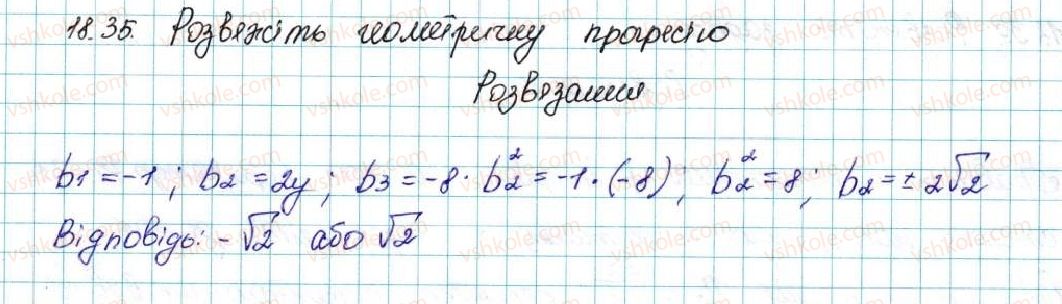 18.35. Розвяжіть геометричну прогресію
Розвязання
b1 = -1; b2 = 2y; b3 = -8. b2² = -1·(-8), b2² = 8; b2 = ± 2√2
Відповідь: -√2 або √2